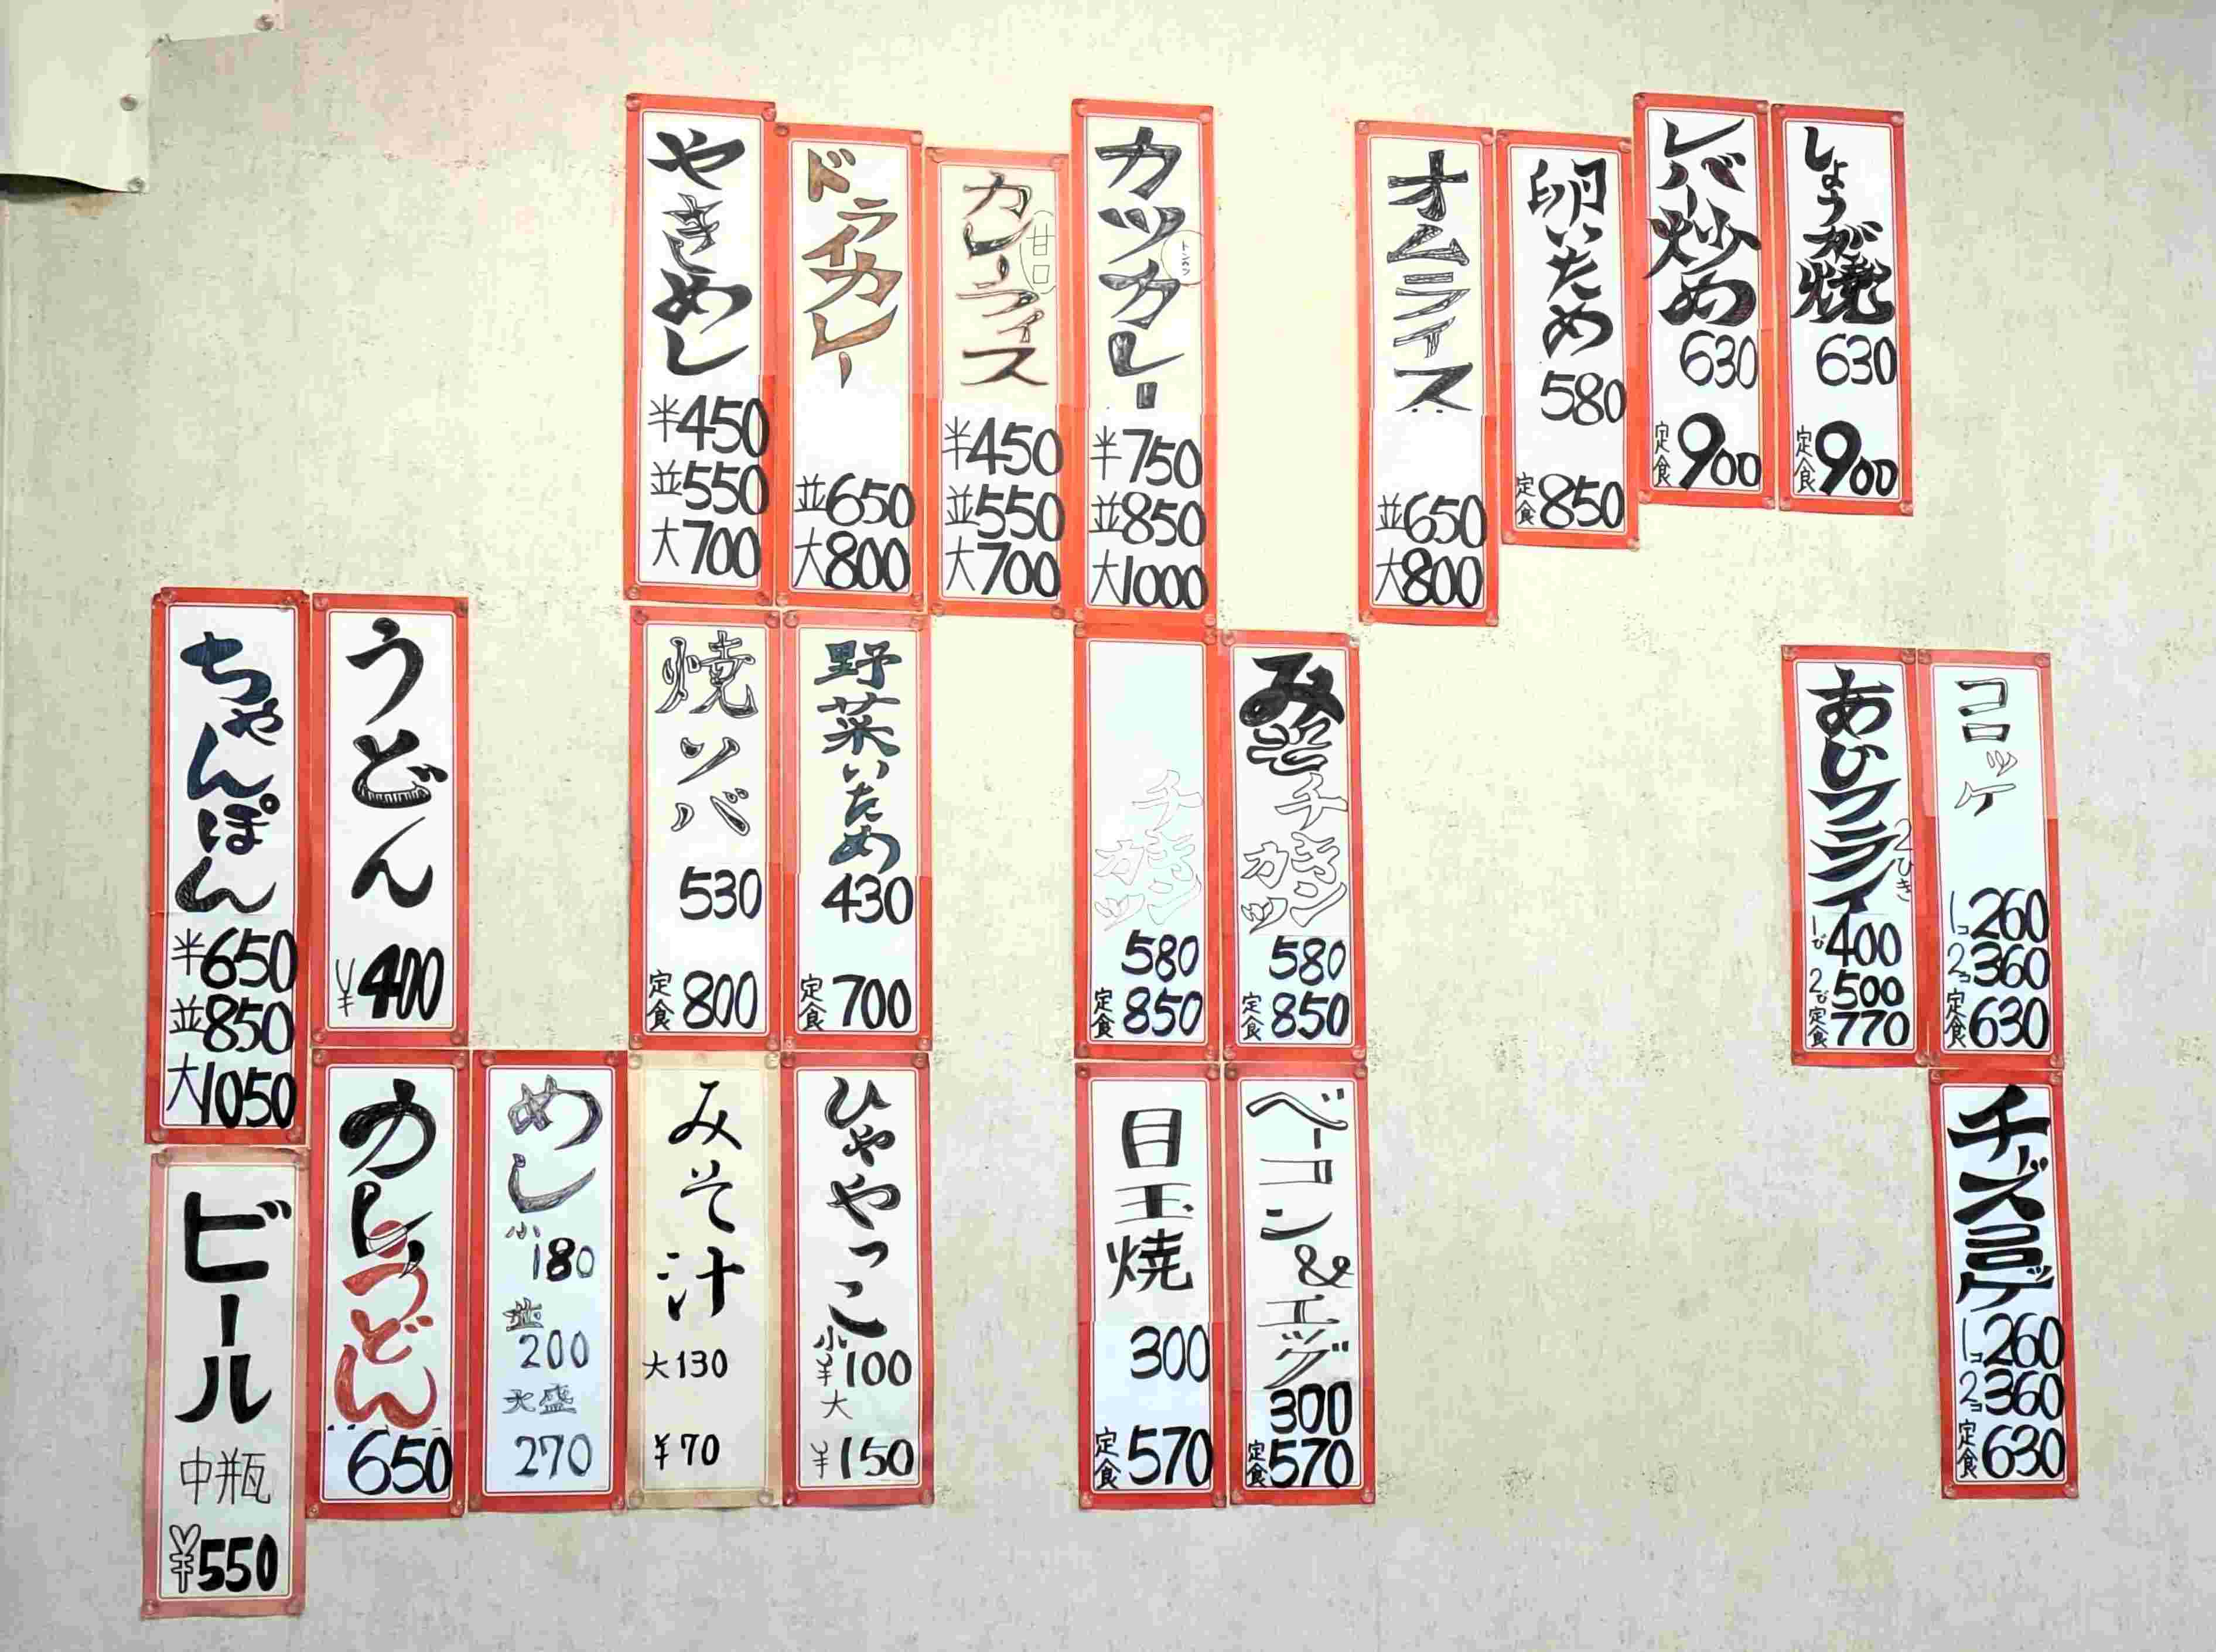 やきめし
半450
並550
大700
ドライカレー
並650
大800
カレーライス
甘口
半450
並550
大700
カツカレー
トンカツ
半750
並850
大1000
オムライス
並650
大800
卵いため
580
定食850
レバー炒め
630
定食900
しょうが焼
630
定食900
ちゃんぽん
半650
並850
大1050
うどん
¥400
焼ソバ
530
定食800
野菜いため
430
定食700
チキンカツ
580
定食850
みそチキンカツ
580
定食850
あじフライ
2ひき
1び400
2び500
定食770
コロッケ
1コ260
2コ360
定食630
ビール
中瓶
¥550
肉うどん
650
めし
小180
並200
大盛270
みそ汁
大130
¥70
ひややっこ
小¥100
大¥150
目玉焼
300
定食570
ベーコン&エッグ
300
定食570
チーズコロッケ
1コ260
2コ360
定食630